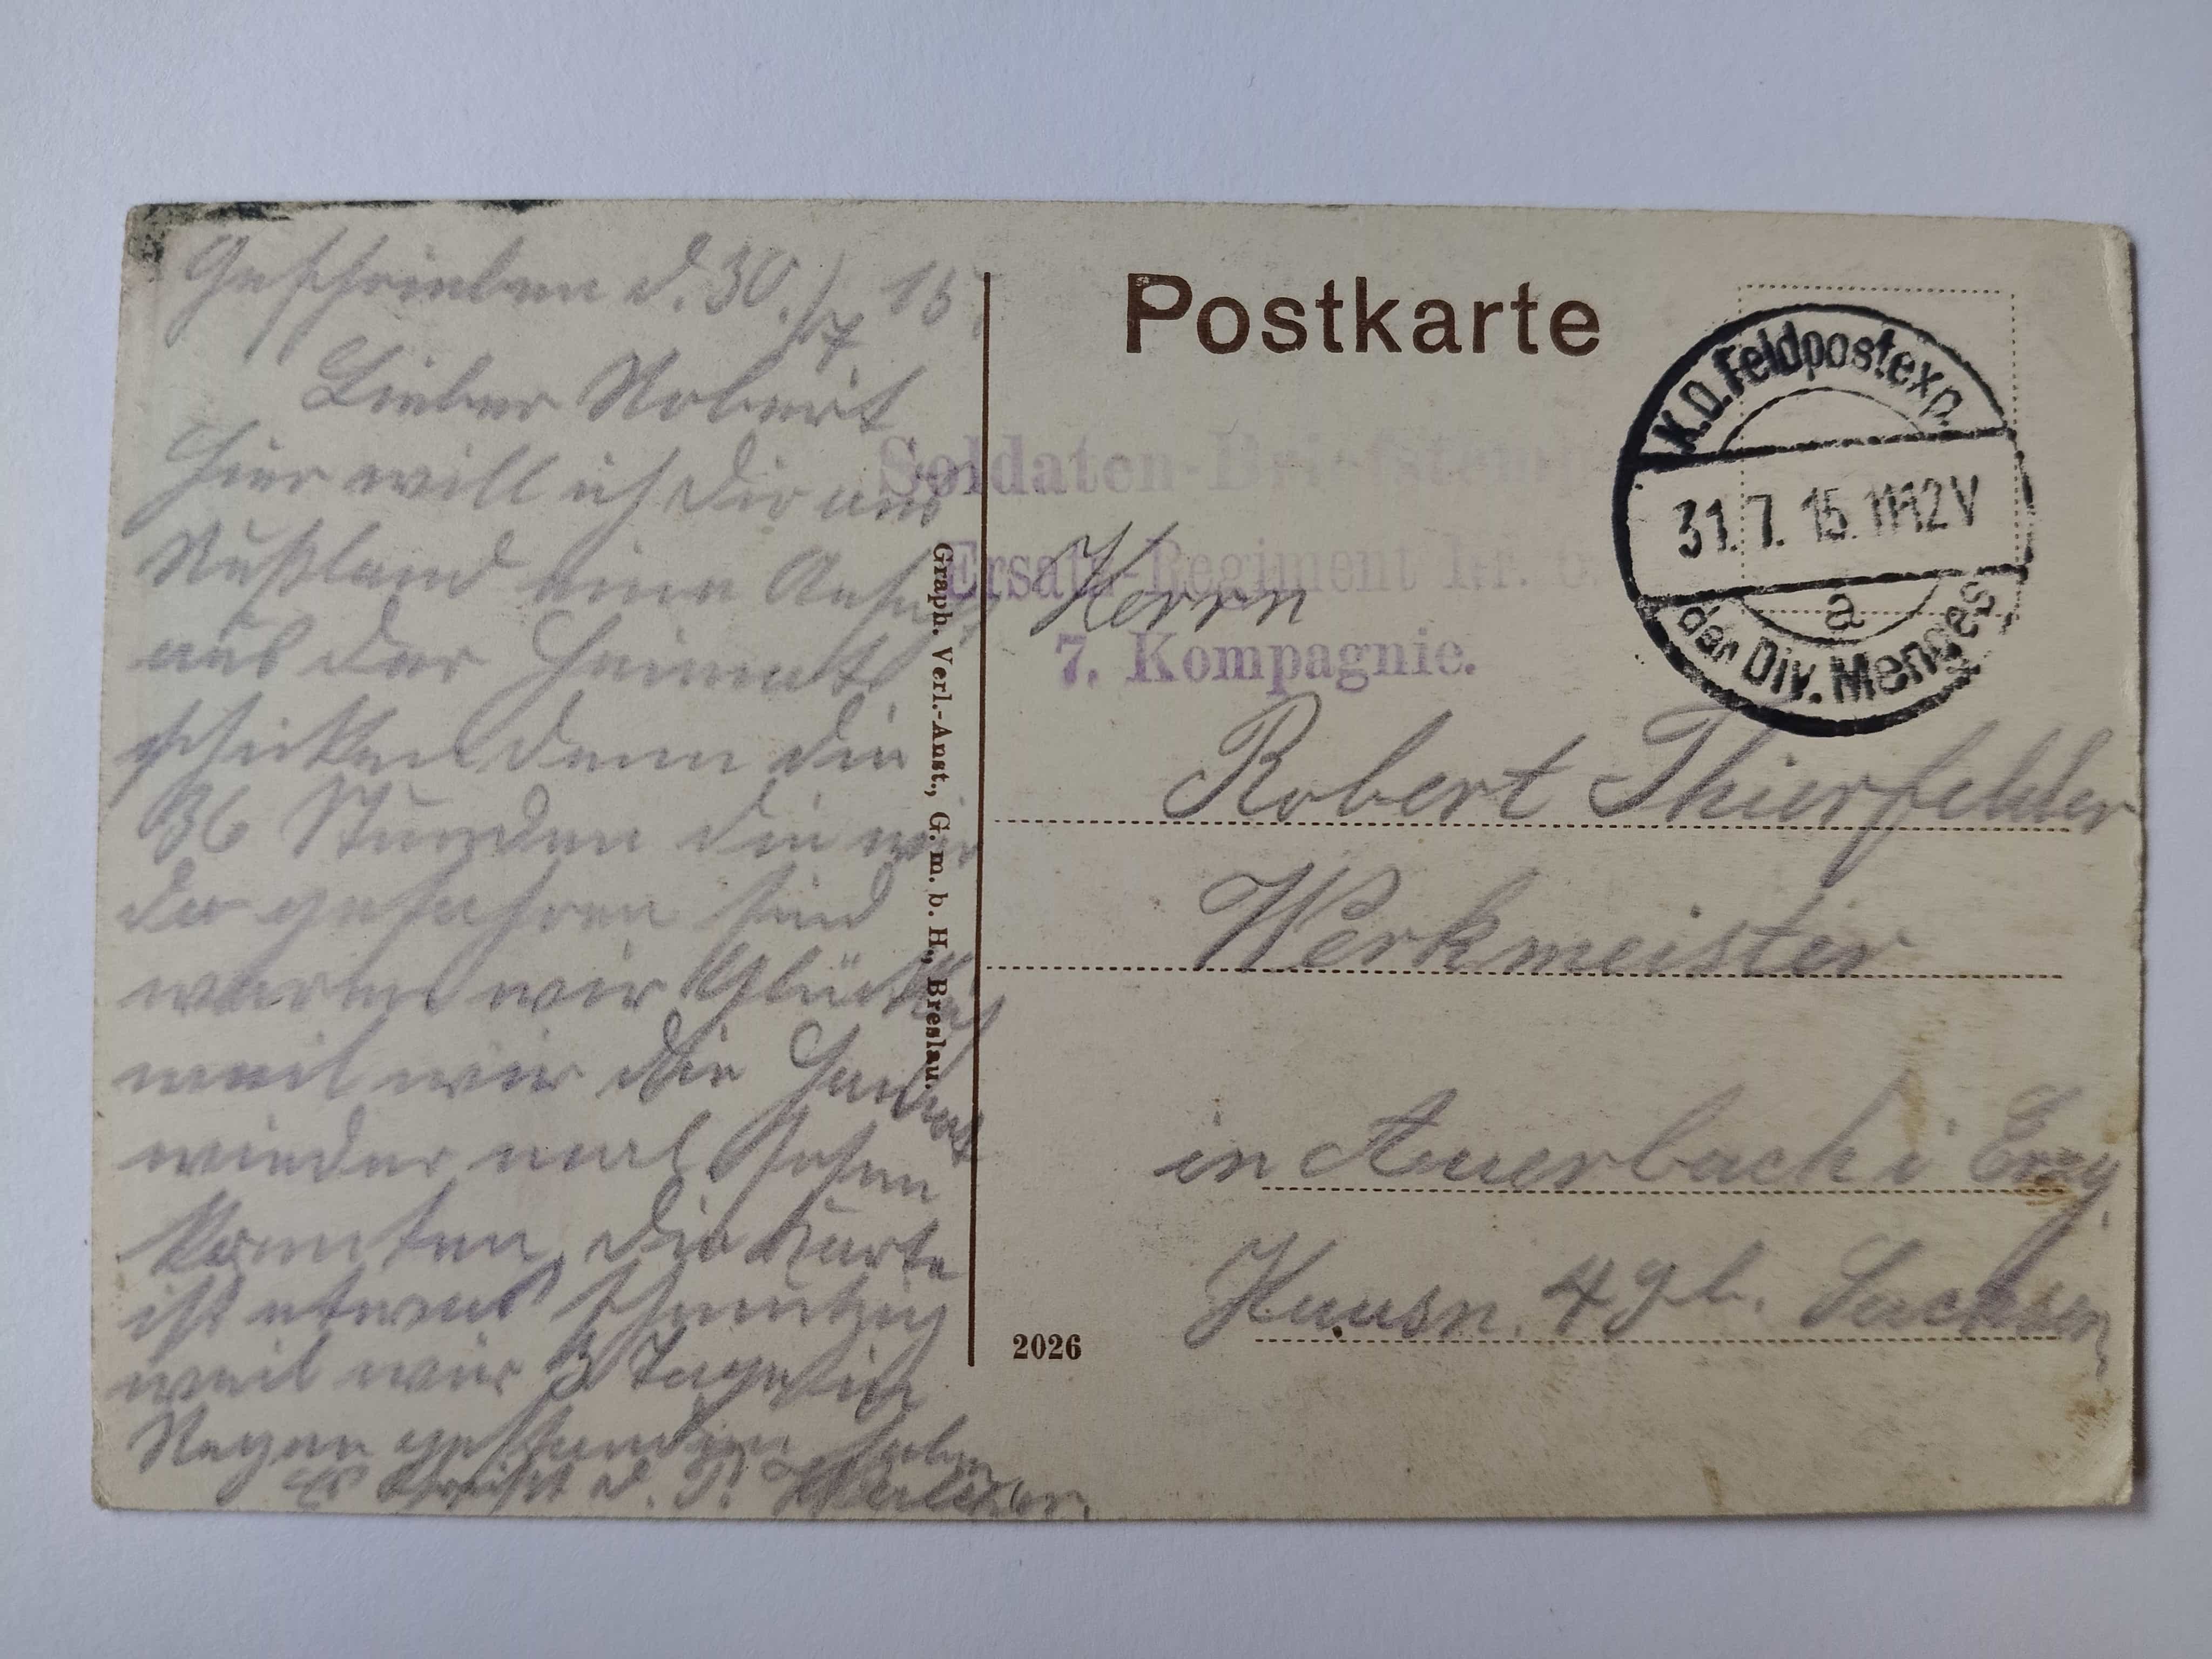 Geschrieben d. 30./7 15.
Lieber Robert
Hier will ich dir aus
Rußland eine Ansicht
aus der Heimat
schicken denn die
36 Stunden die wir
da gefahren sind
waren wir Glücklich
weil wir die Heimat
wieder mal sehen
konnten, die Karte
ist etwas schmutzig
weil wir 3 Tage im
Regen gestanden haben
Es grüßt d. P.
Graph. Verl.-Anst., G. m. b. H., Breslau.
Postkarte
K.D. Feldpostexp.
31.7.15. 11-12 V
a
der Div. Menges
Soldaten-Briefstempel
Ersatz-Regiment Nr.
7. Kompagnie.
Herrn
Robert Thierfelder
Werkmeister
in Auerbach i Erzg.
Hausn. 49 b. Sachsen
2026